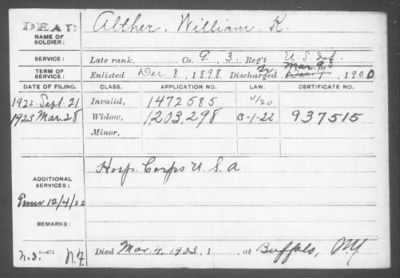 DEAD
NAME OF SOLDIER: Alther, William K.
SERVICE: Late rank, Co. G. 3. Reg't U.S. Inf.
TERM OF SERVICE: Enlisted Dec 8, 1898 Discharged Dec. 7, 1900
Mar. 9
DATE OF FILING. CLASS. APPLICATION NO. LAW. CERTIFICATE NO.
1922 Sept. 21 Invalid, 1472585
1923 Mar. 28 Widow, 1203298 C-1-22 937515
Minor,
ADDITIONAL SERVICES: Hosp. Corps U.S.A
12/4/22
REMARKS:
N.Y. Died Mar. 4, 1923, 1 , at Buffalo, N.Y.